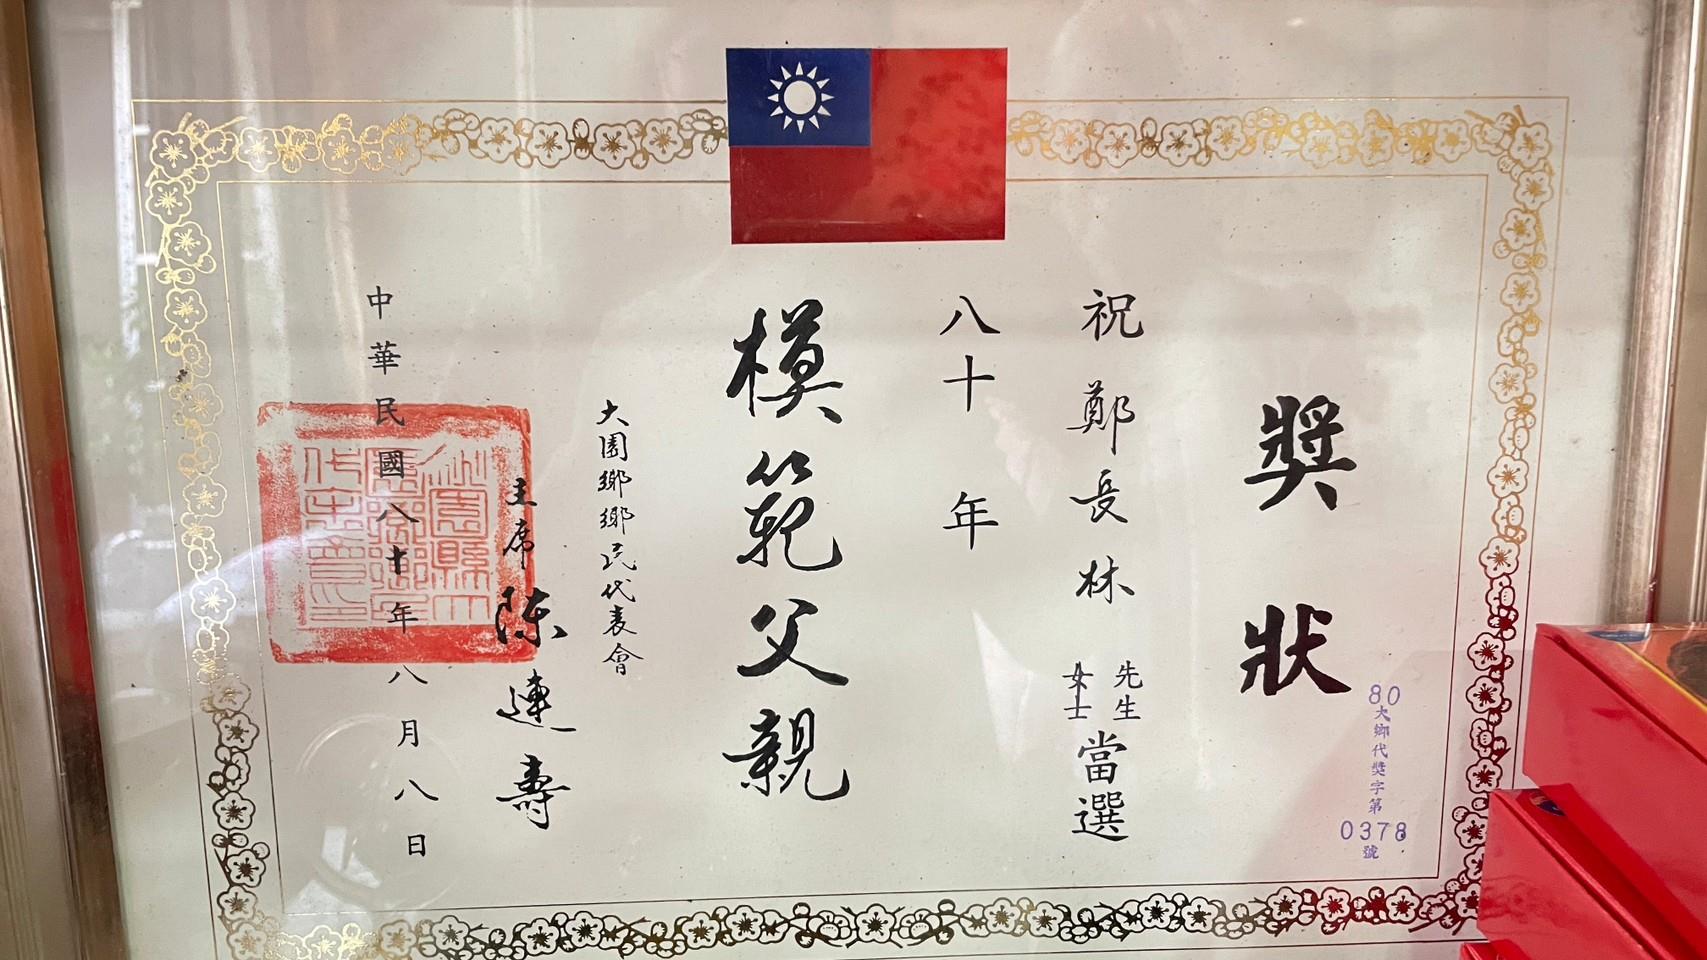 獎狀
80大鄉代獎字第0378號
祝鄭長林先生女士當選
八十年
模範父親
大園鄉鄉民代表會
主席陳連壽
中華民國八十年八月八日
桃園縣大園鄉鄉民代表會印